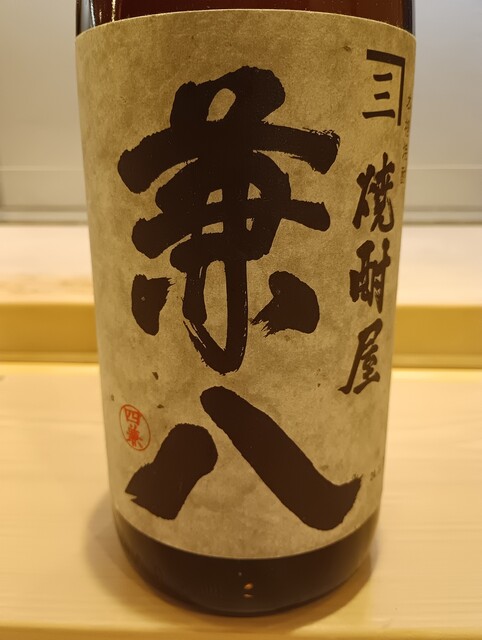 三
焼酎屋
兼八
四兼